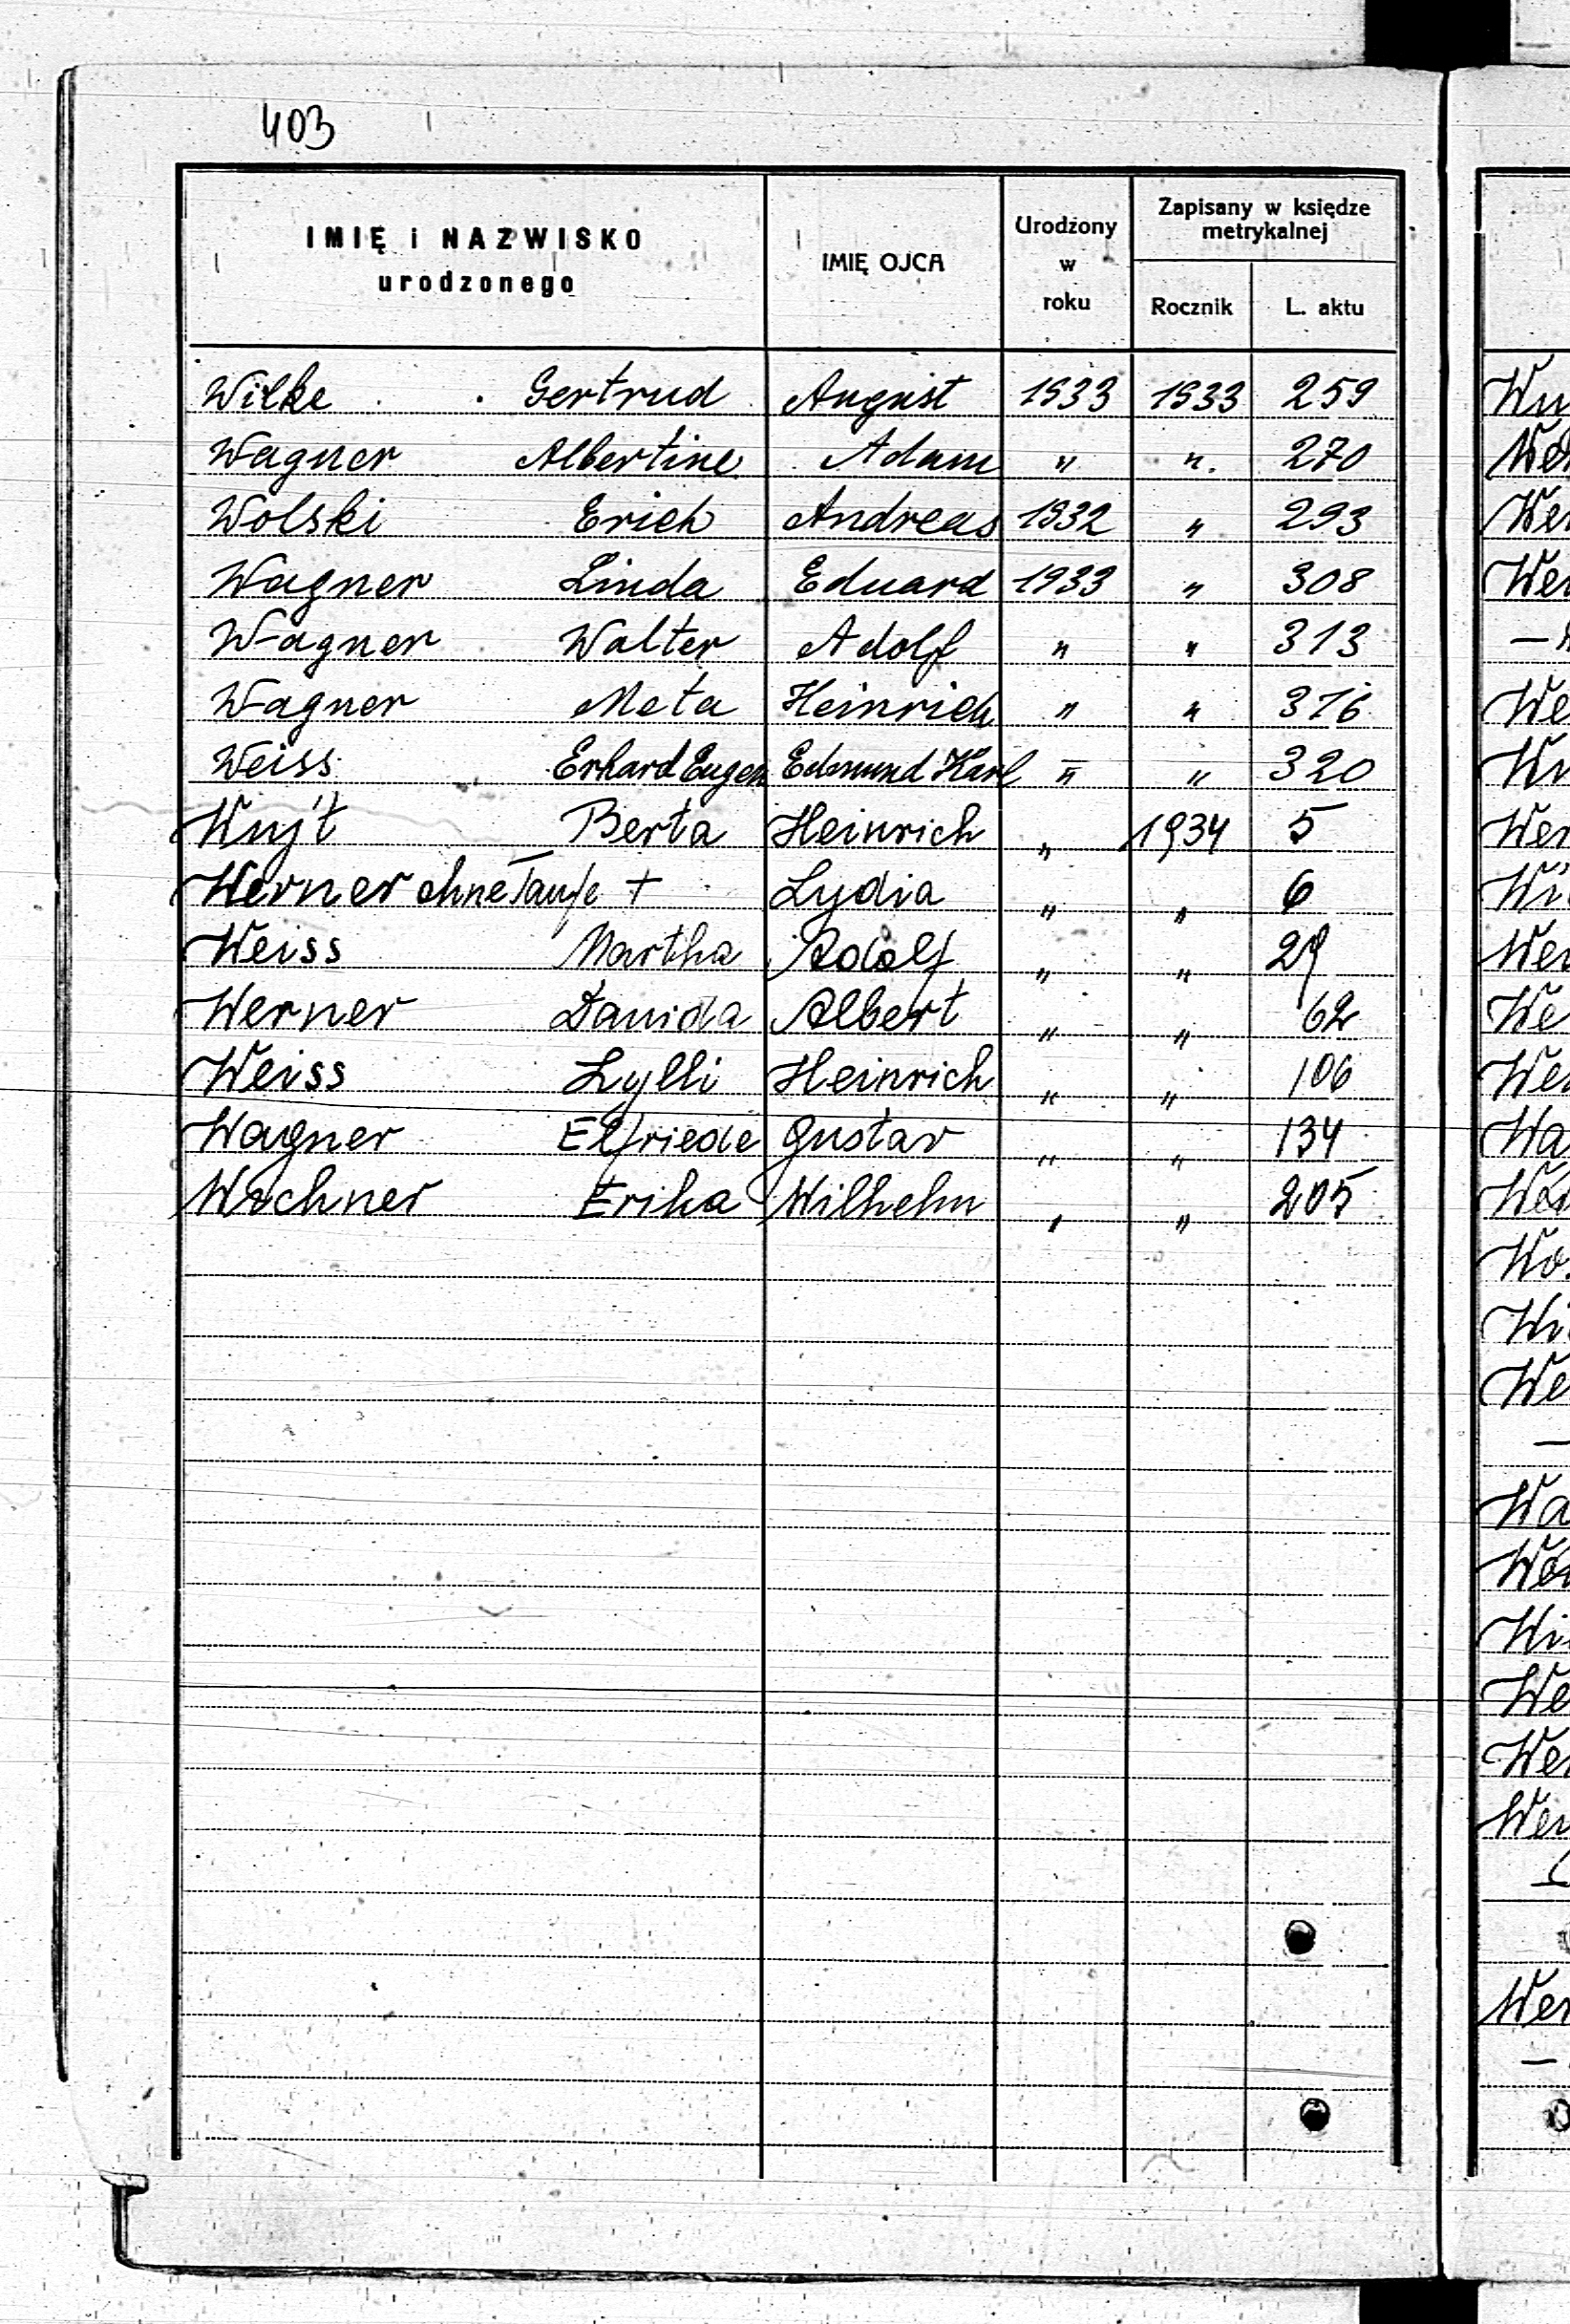 403
IMIĘ i NAZWISKO urodzonego
IMIĘ OJCA
Urodzony w roku
Zapisany w księdze metrykalnej
Rocznik
L. aktu
Wilke Gertrud August 1933 1933 259
Wagner Albertine Adam " " 270
Wolski Erich Andreas 1932 " 293
Wagner Linda Eduard 1933 " 308
Wagner Walter Adolf " " 313
Wagner Meta Heinrich " " 316
Weiss Erhard Eugen Edmund Karl " " 320
Wujt Berta Heinrich " 1934 5
Werner ohne Taufe + Lydia " " 6
Weiss Martha Adolf " " 29
Werner Danida Albert " " 62
Weiss Lylli Heinrich " " 106
Wagner Elfriede Gustav " " 134
Wochner Erika Wilhelm " " 205